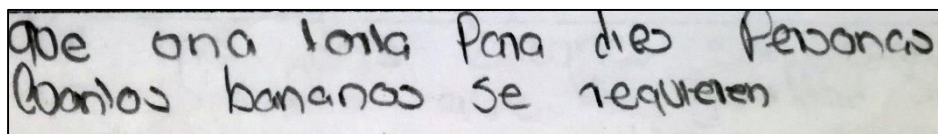 que una torta para dies Personas
Cuantos bananos se requieren